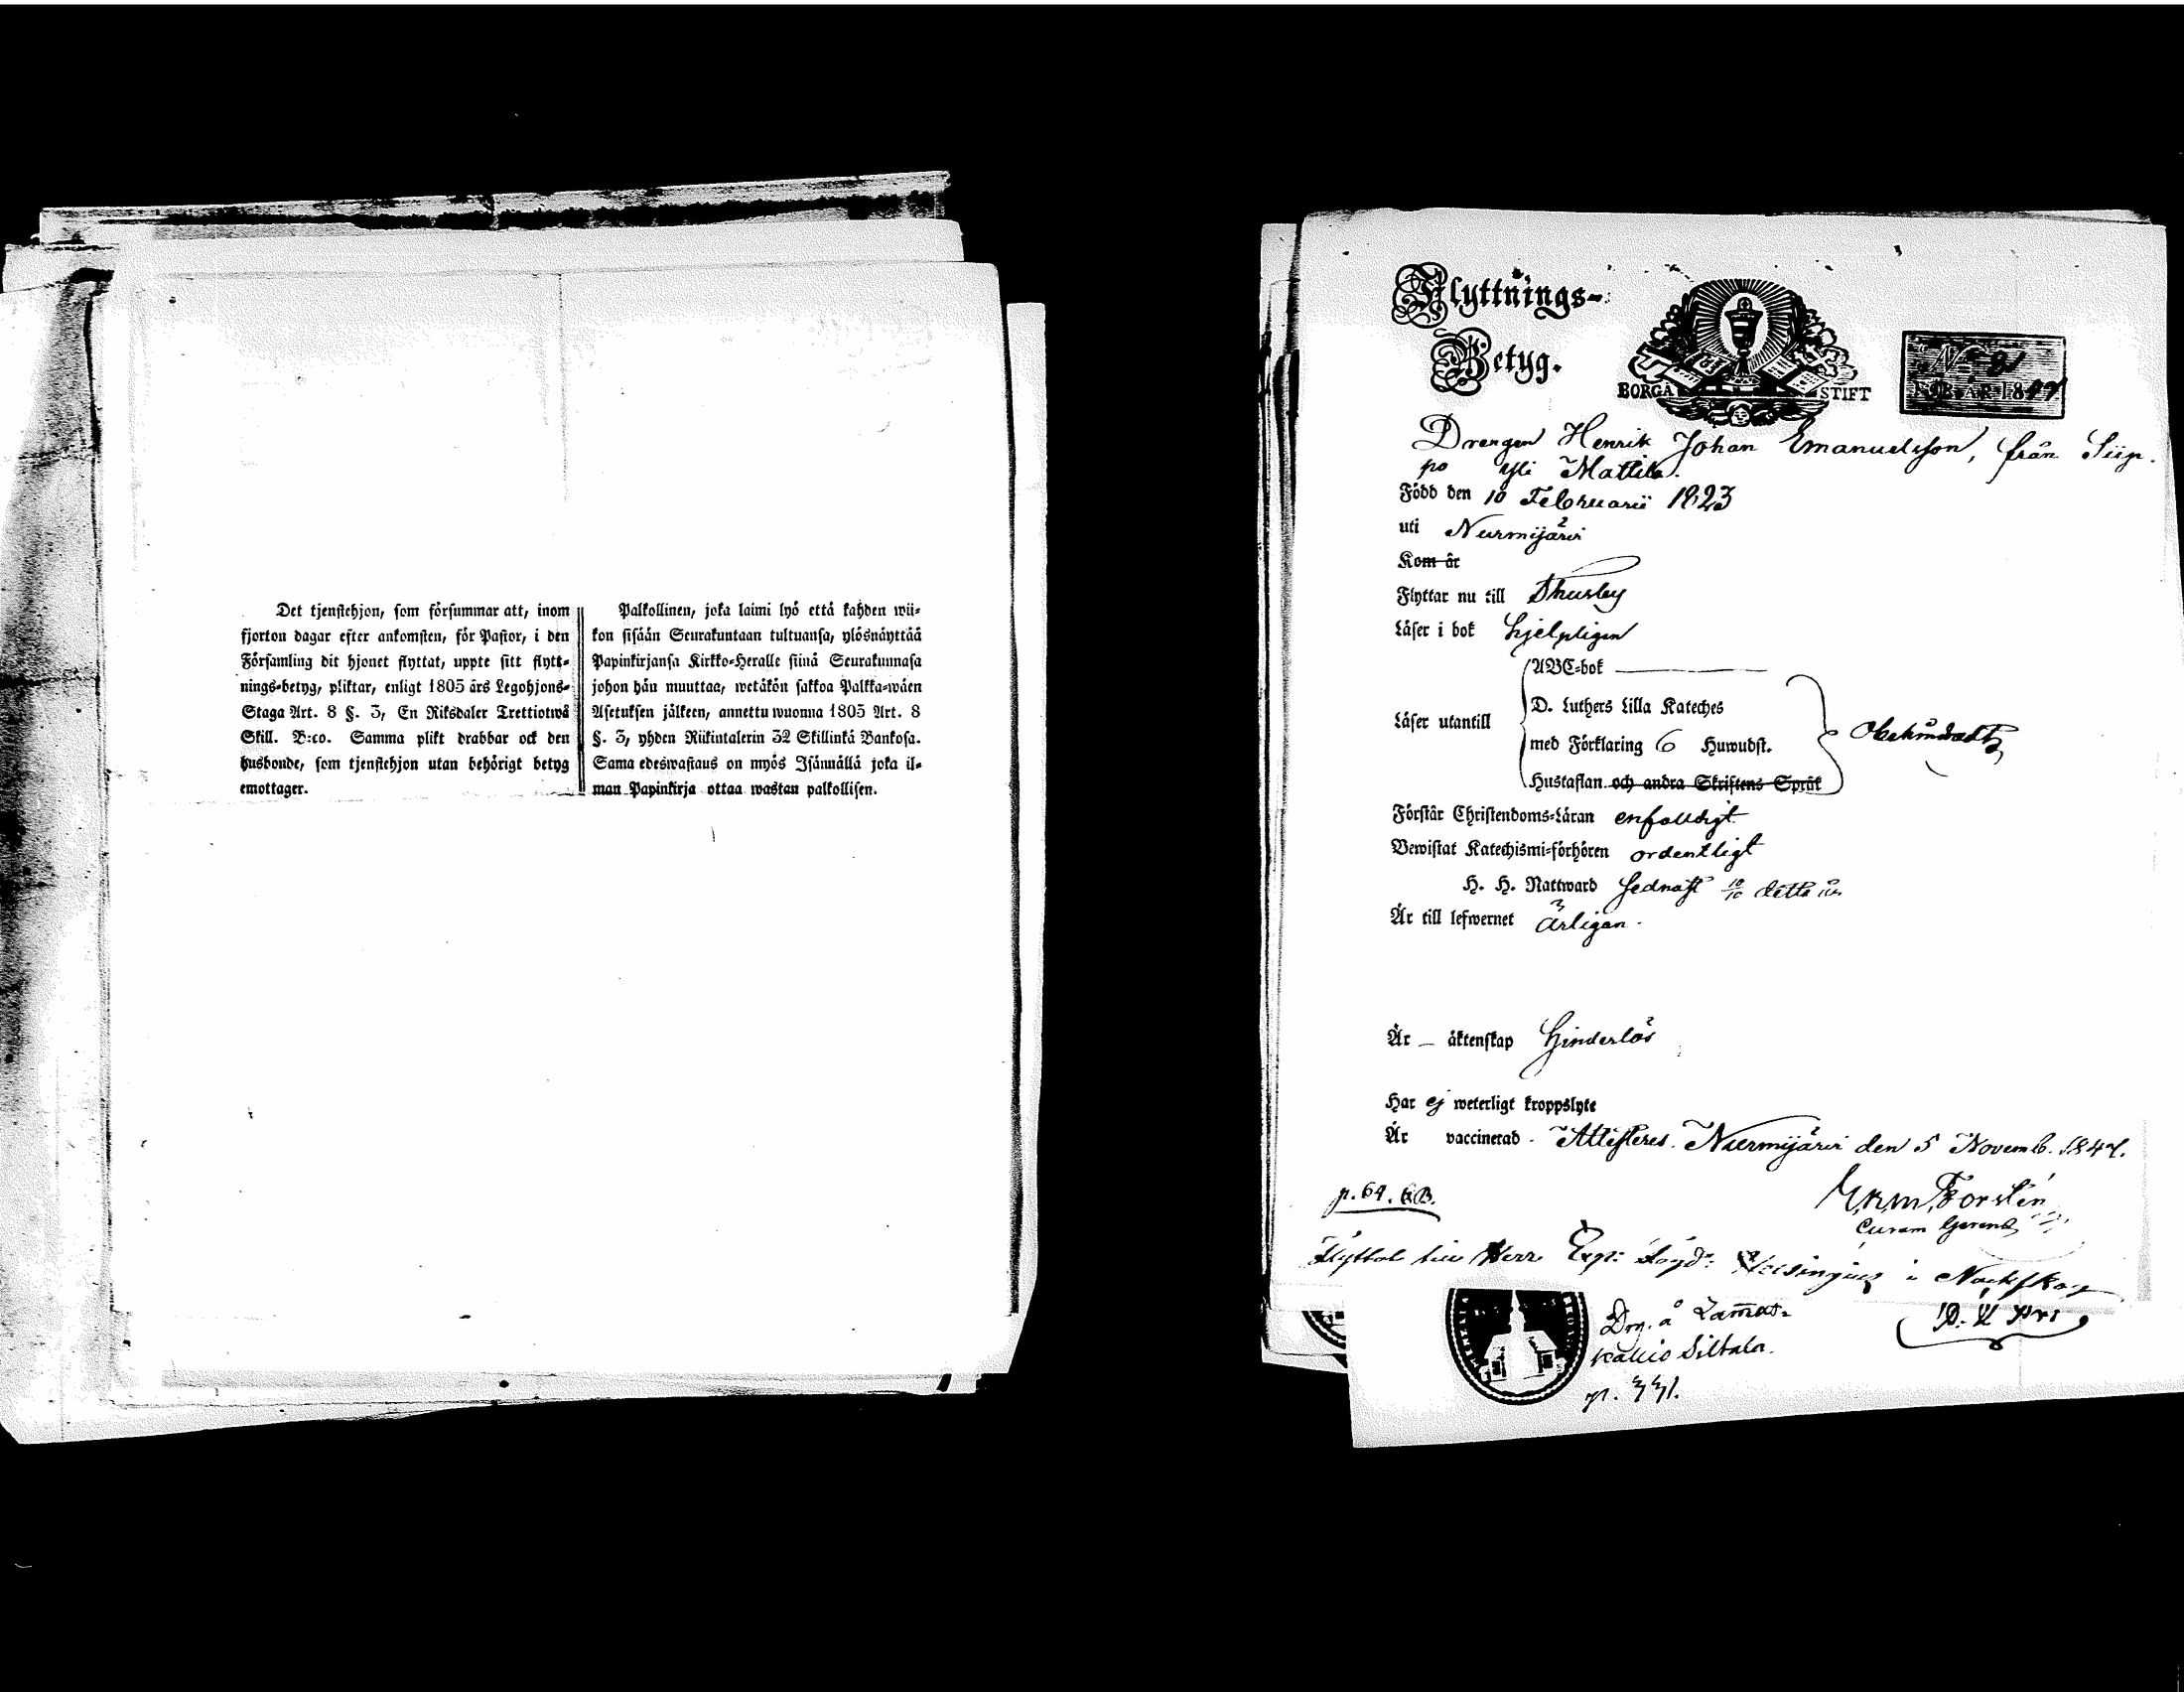 Det tjenstehjon, som försummar att, inom
fjorton dagar efter ankomsten, för Pastor, i den
Församling dit hjonet flyttat, uppte sitt flytt-
nings-betyg, pliktar, enligt 1805 års Legohjons-
Staga Art. 8 §. 3, En Riksdaler Trettiotwå
Skill. B:co. Samma plikt drabbar ock den
husbonde, som tjenstehjon utan behörigt betyg
emottager.
Palkollinen, joka laimi lyö että kahden wii-
kon sisään Seurakuntaan tultuansa, ylösnäyttää
Papinkirjansa Kirkko-Heralle siinä Seurakunnasa
johon hän muuttaa, wetäkön sakkoa Palkka-wäen
Asetuksen jälkeen, annettu wuonna 1805 Art. 8
§. 3, yhden Riikintalerin 32 Skillinkä Bankosa.
Sama edeswastaus on myös Isännällä joka il-
man Papinkirja ottaa wastan palkollisen.
Flyttnings-
Betyg.
BORGÅ STIFT
No 81
FÖR ÅR 1847
Drengen Henrik Johan Emanuelsson, från Siip.
po Yli Mattila.
Född den 10 Februarii 1823
uti Nurmijärvi
Kom år
Flyttar nu till Thusby
Läser i bok hjelpligen
ABC-bok
D. Luthers Lilla Kateches
Läser utantill
med Förklaring 6 Huwudst.
Hustaflan och andra Skriftens Språk
Förstår Christendoms-Läran enfaldigt
Bewistat Katechismi-förhören ordentligt
H. H. Nattward sednast 10/10 detta år
Är till lefwernet ärligen.
Är äktenskap hinderlös
Har ej weterligt kroppslyte
Är vaccinerad. Attesteres. Nurmijärvi den 5 Novemb. 1847.
p. 64. KB.
Forstén
Curam Gerens
Herr i
Drg. å
kallio Siltala.